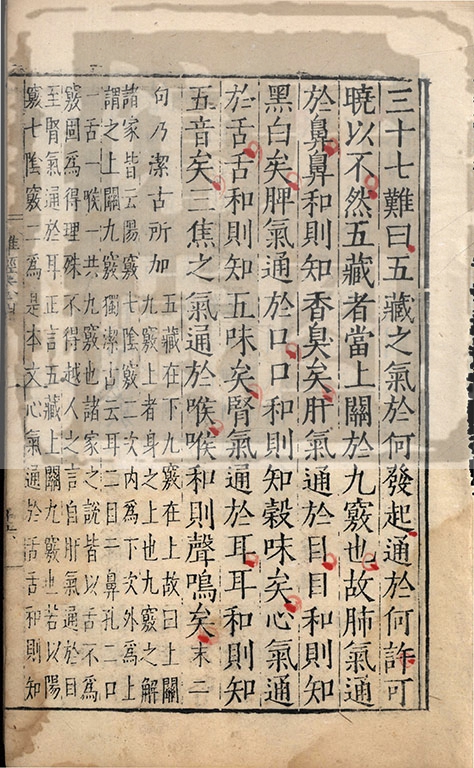 三十七難曰五藏之氣於何發起通於何許可
曉以不然五藏者當上關於九竅也故肺氣通
於鼻鼻和則知香臭矣肝氣通於目目和則知
黑白矣脾氣通於口口和則知穀味矣心氣通
於舌舌和則知五味矣腎氣通於耳耳和則知
五音矣三焦之氣通於喉喉和則聲鳴矣末二
句乃潔古所加
五藏在下九竅在上故曰上關
九竅上者身之上也九竅之解
諸家皆云陽竅七陰竅二次內為下次外為上
謂之上關九竅獨潔古云耳二目二鼻孔二口
一舌一喉一共九竅也諸家之說皆以舌不為
竅固為得理殊不得越人之言自肝氣通於目
至腎氣通於耳正言五藏上關九竅也若以陽
竅七陰竅二為是本文心氣通於舌舌和則知